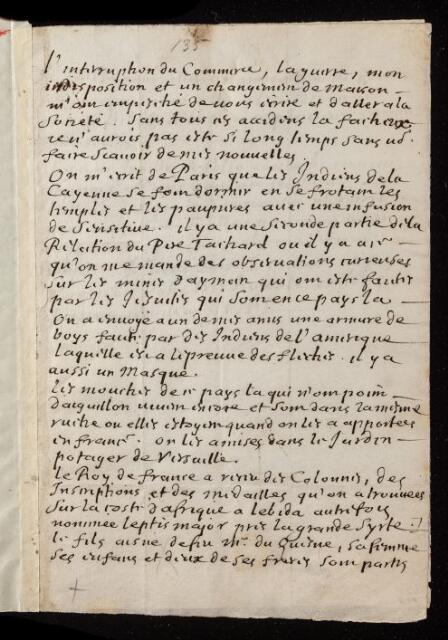 135
L'interruption du Commerce, la guerre, mon
indisposition et un changement de maison
m'ont empesché de vous écrire et d'aller a la
Societé. Sans tous ces accidens la facheux
je n'aurois pas esté si long temps sans vous
faire scavoir de mes nouvelles.
On m'écrit de Paris que les Indiens de la
Cayenne se font dormir en se frotant les
temples et les paupieres avec une infusion
de Sensitive. il y a une seconde partie de la
Relation du Pere Tachard ou il y a a ce
qu'on me mande des observations curieuses
sur les mines d'aymant qui ont esté faites
par les Jesuites qui sont en ce pays la
On a envoyé a un de mes amis une armure de
boys faite par des Indiens de l'amerique
laquelle est a l'épreuve des fleches. il y a
aussi un Masque.
Les mouches de ce pays la qui n'ont point
d'aiguillon vivent encore et sont dans la mesme
ruche ou elles estoyent quand on les a apportées
en france. on les a mises dans le Jardin
potager de Versaille.
le Roy de france a receu des Colonnes, des
Inscriptions et des medailles qu'on a trouvées
sur la coste d'afrique a lebida autrefois
nommée leptis major prés la grande Syrte.
le fils aisné de feu Mr. du Quesne, sa femme
ses enfans et deux de ses freres sont partis